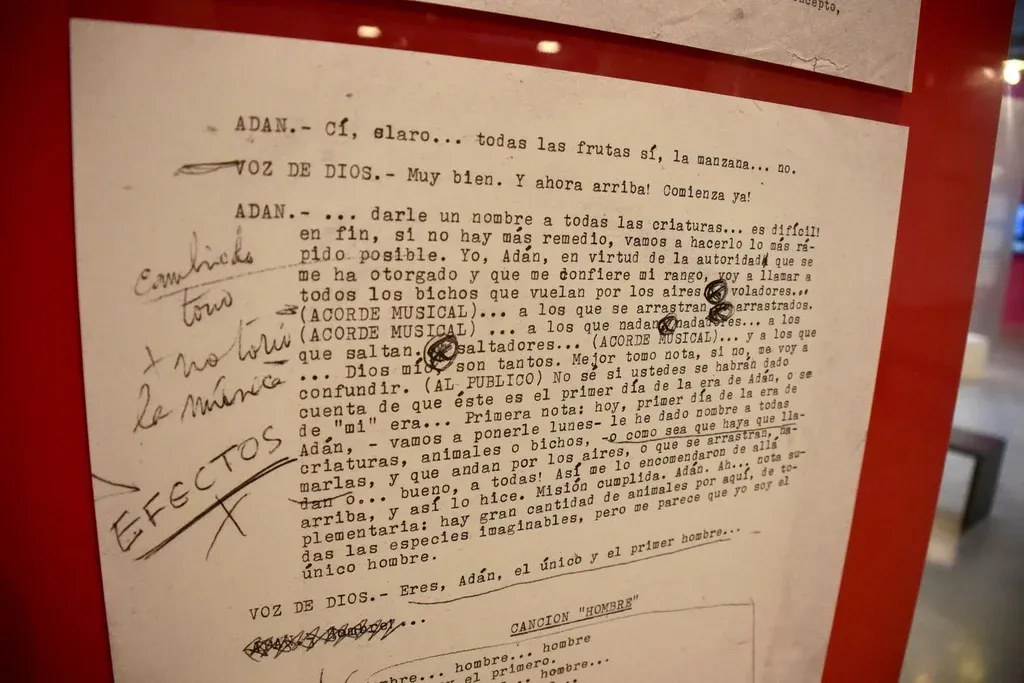 ncepto,
ADAN.- Cí, slaro... todas las frutas sí, la manzana... no.
VOZ DE DIOS.- Muy bien. Y ahora arriba! Comienza ya!
ADAN.- ... darle un nombre a todas las criaturas... es difícil!
en fin, si no hay más remedio, vamos a hacerlo lo más rá-
pido posible. Yo, Adán, en virtud de la autoridad que se
me ha otorgado y que me confiere mi rango, voy a llamar a
todos los bichos que vuelan por los aires voladores...
(ACORDE MUSICAL)... a los que se arrastran arrastrados.
(ACORDE MUSICAL) ... a los que nadan nadadores... a los
que saltan. saltadores... (ACORDE MUSICAL)... y a los que
... Dios mío, son tantos. Mejor tomo nota, si no, me voy a
confundir. (AL PUBLICO) No sé si ustedes se habrán dado
cuenta de que éste es el primer día de la era de Adán, o se
de "mi" era... Primera nota: hoy, primer día de la era de
Adán, - vamos a ponerle lunes- le he dado nombre a todas
criaturas, animales o bichos, -o como sea que haya que lla-
marlas, y que andan por los aires, o que se arrastran, na-
dan o... bueno, a todas! Así me lo encomendaron de allá
arriba, y así lo hice. Misión cumplida. Adán. Ah... nota su-
plementaria: hay gran cantidad de animales por aquí, de to-
das las especies imaginables, pero me parece que yo soy el
único hombre.
VOZ DE DIOS.- Eres, Adán, el único y el primer hombre...
...
CANCION "HOMBRE"
hombre... hombre
mbre... y el primero.
hombre...
tono
+ no
la música
EFECTOS
X